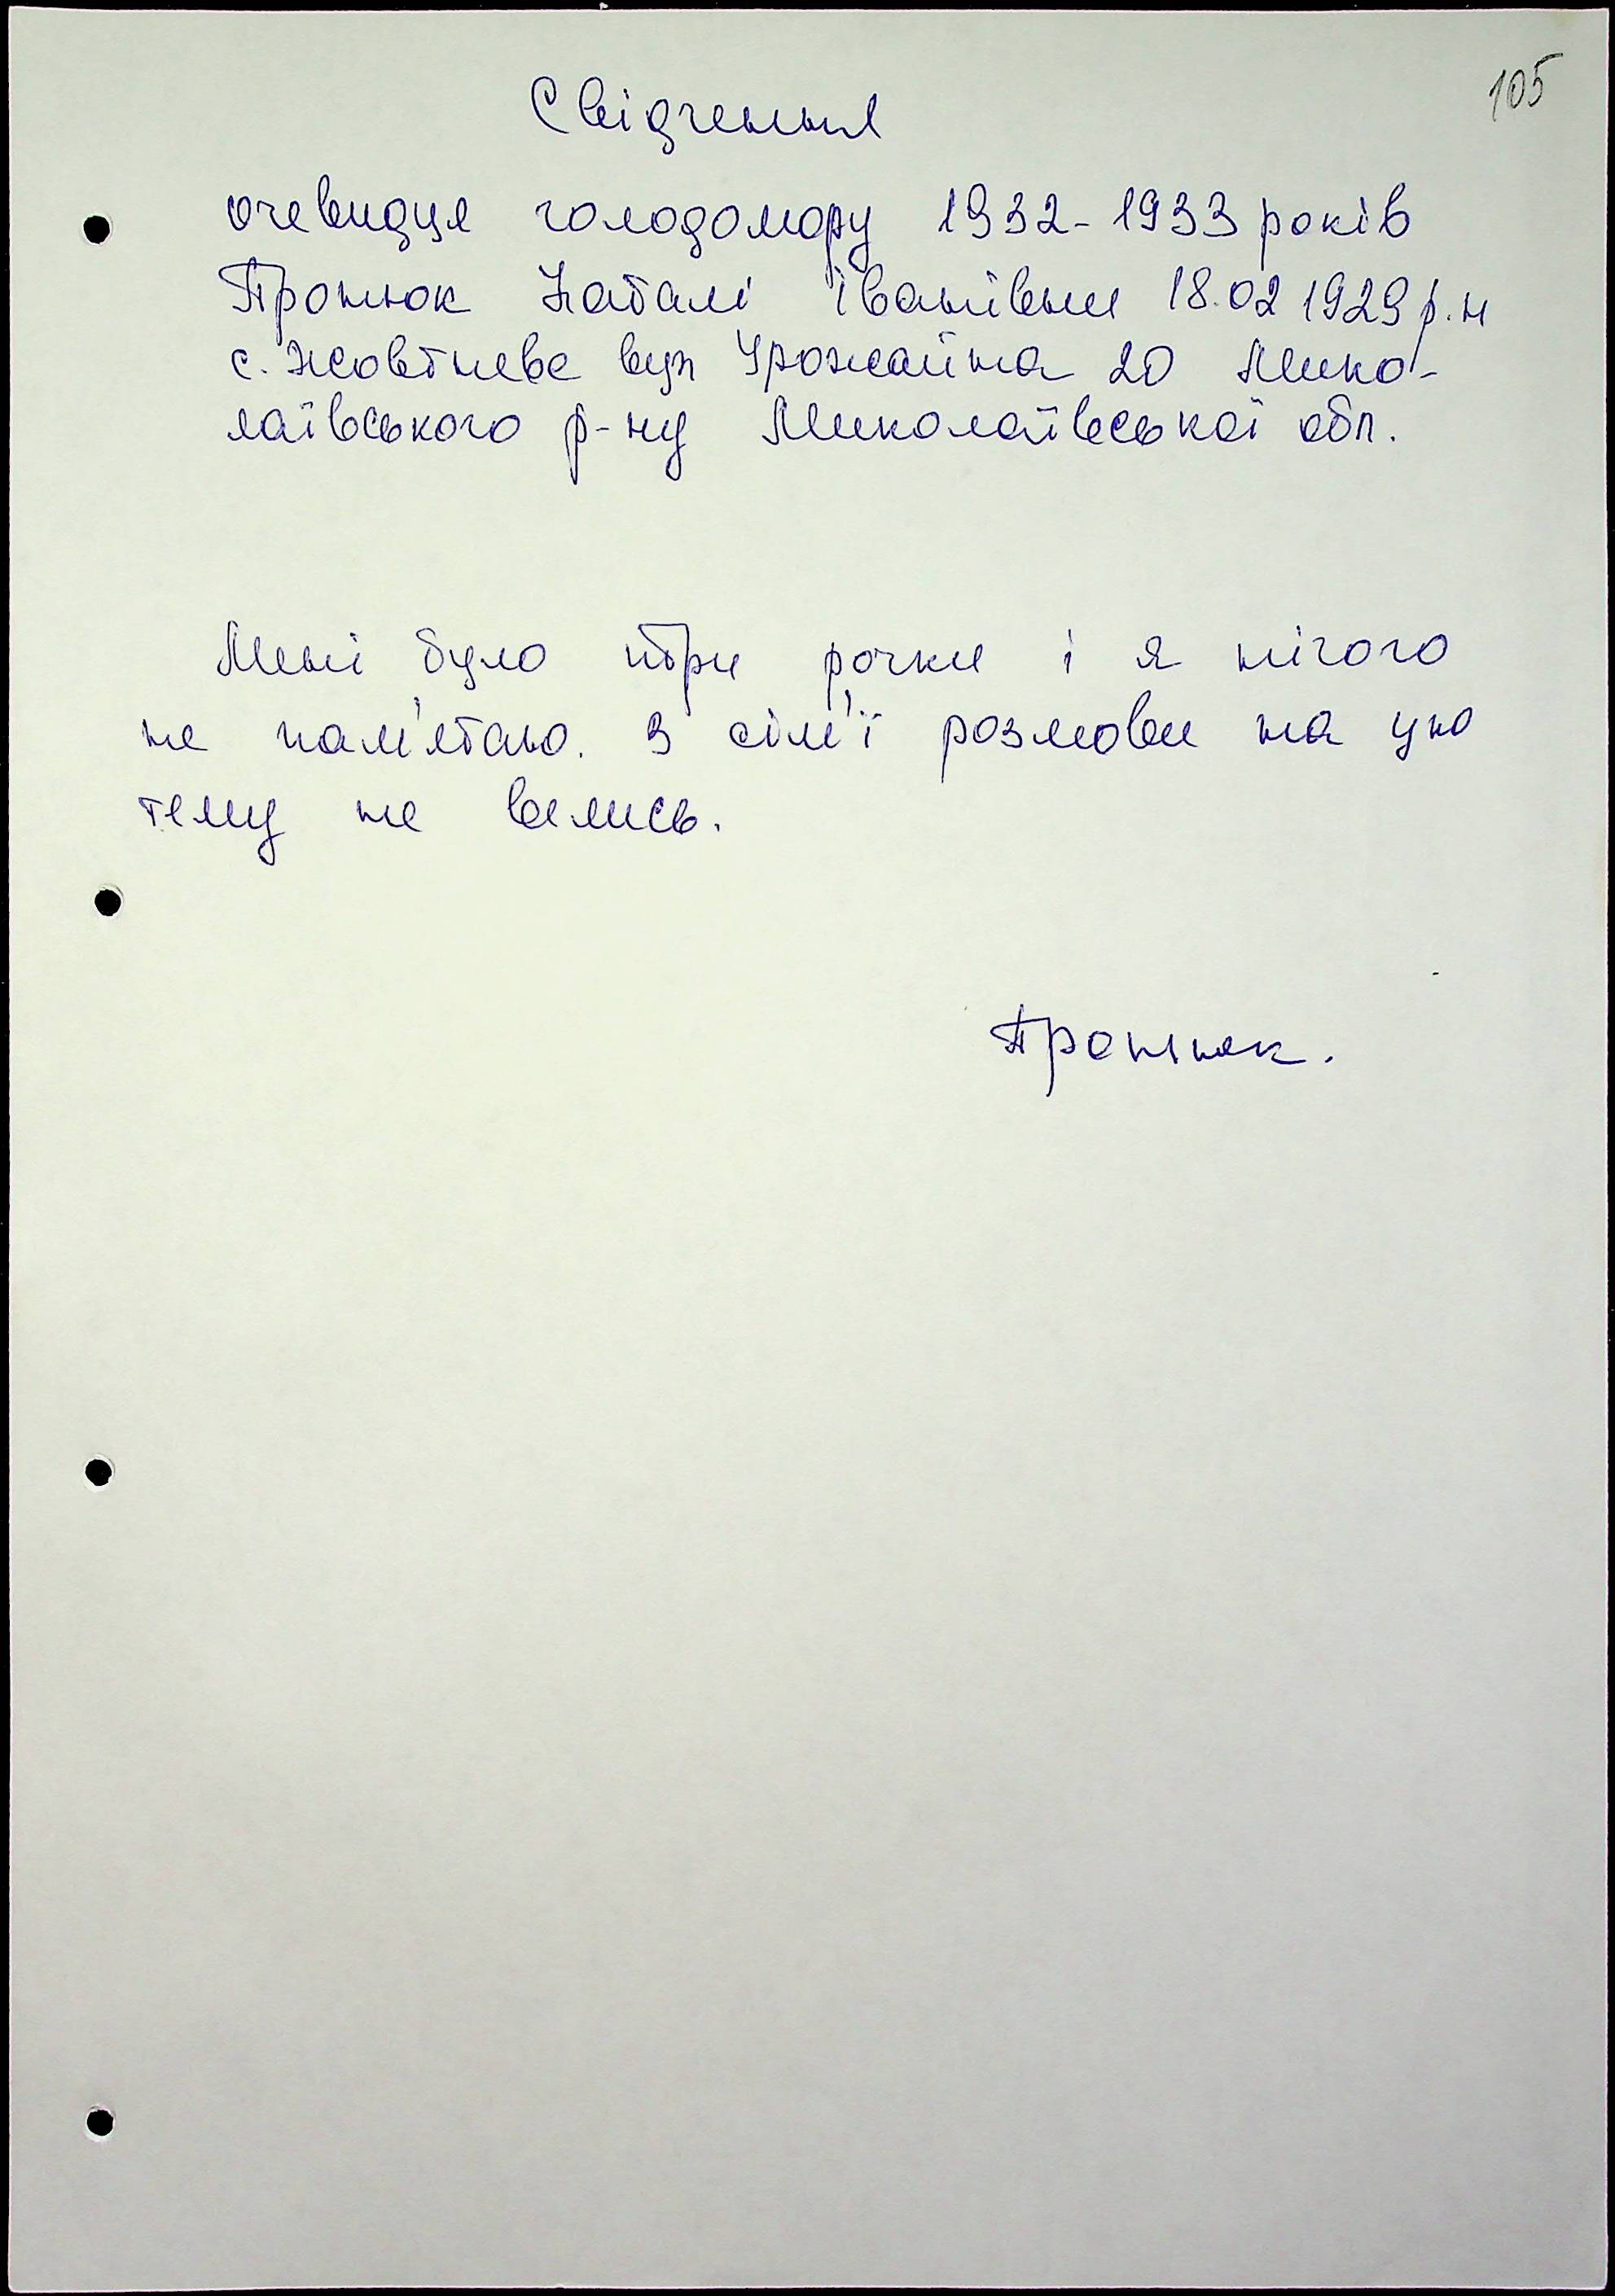 105
Свідчення
очевидця голодомору 1932-1933 років
Пронюк Наталі Іванівни 18.02 1929 р.н
с. Жовтневе вул Урожайна 20 Мико-
лаївського р-ну Миколаївської обл.
Мені було три рочки і я нічого
не пам'ятаю. В сім'ї розмови на цю
тему не велись.
Пронюк.